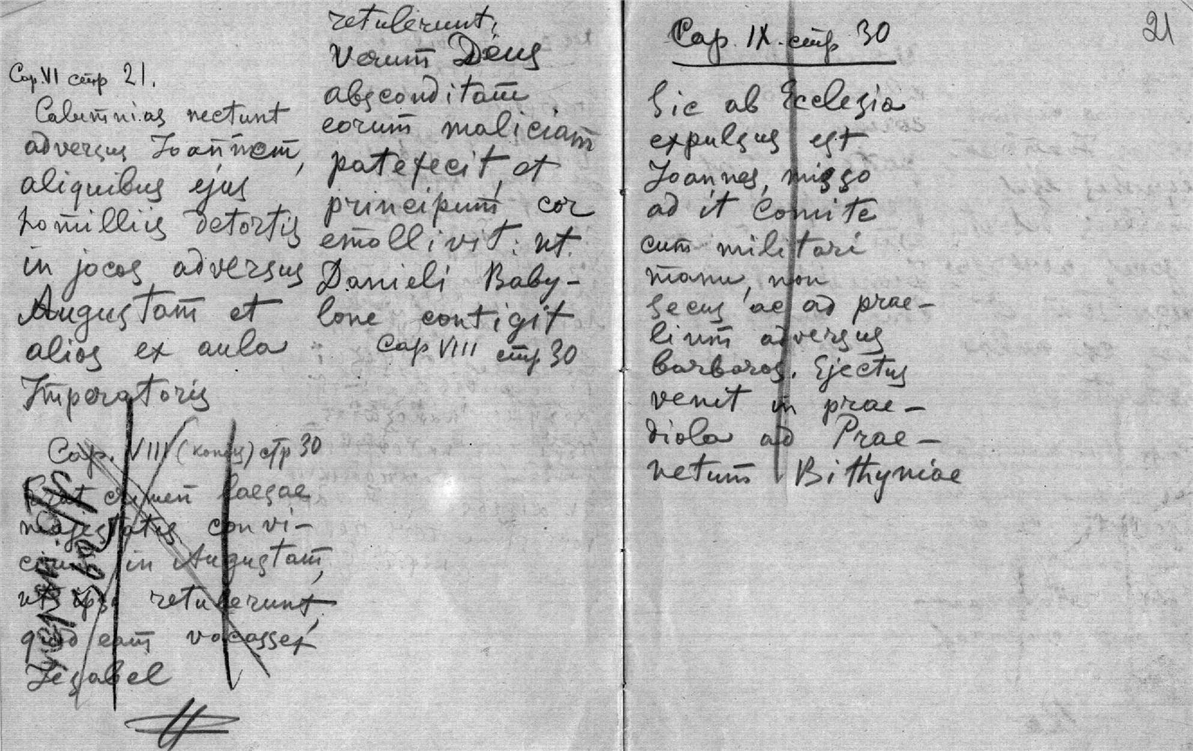 Cap VI стр 21.
Calumnias nectunt
adversus Joannem,
aliquibus ejus
homilliis detortis
in jocos adversus
Augustam et
alios ex aula
Imperatoris
Cap. VIII (конец) стр 30
Erat crimen laesae
majestatis convi-
cium in Augustam,
ut ipsi retulerunt,
quod eam vocasset
Jezabel
retulerunt,
Verum Deus
absconditam
eorum maliciam
patefecit, et
principum, cor
emollivit: ut.
Danieli Baby-
lone contigit
Cap VIII стр 30
21
Cap. IX. стр 30
Sic ab Ecclesia
expulsus est
Joannes, misso
ad it Comite
cum militari
manu, non
secus ac ad prae-
lium adversus
barbaros. Ejectus
venit in prae-
diola ad Prae-
netum Bithyniae